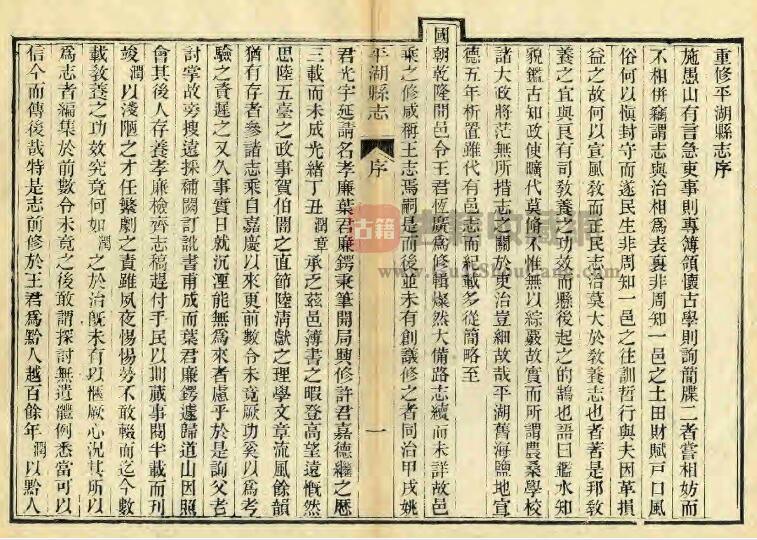 重修平湖縣志序
施愚山有言急吏事則專簿領懷古學則詢簡牒二者嘗相妨而
不相併竊謂志與治相為表裏非周知一邑之土田財賦戶口風
俗何以慎封守而遂民生非周知一邑之往訓哲行與夫因革損
益之故何以宣風敎而正民志治莫大於敎養志也者著是邦敎
養之宜與良有司敎養之功效而懸後起之的鵠也語曰鑑水知
貌鑑古知政使曠代莫脩不惟無以綜覈故實而所謂農桑學校
諸大政將茫無所措志之關於吏治豈細故哉平湖舊海鹽地宣
德五年析置雖代有邑志而紀載多從簡略至
國朝乾隆間邑令王君恆廣為修輯燦然大備路志續而未詳故邑
乘之修咸稱王志焉嗣是而後並未有創議修之者同治甲戌姚
平湖縣志
序
一
君光宇延請名孝廉葉君廉鍔秉筆開局興修許君嘉德繼之歷
三載而未成光緒丁丑潤章承乏茲邑簿書之暇登高望遠慨然
思陸五臺之政事賀伯闇之直節陸清獻之理學文章流風餘韻
猶有存者參諸志乘自嘉慶以來更前數令未竟厥功奚以為考
驗之責遲之又久事實日就沉湮能無為來者慮乎於是詢父老
討掌故旁搜遠採補闕訂訛書甫成而葉君廉鍔遽歸道山因照
會其後人存養孝廉檢齊志稿趕付手民以期蕆事閱半載而刊
竣潤以淺陋之才任繁劇之責雖夙夜惕惕勞不敢輟而迄今數
載敎養之功效究竟何如潤之於治旣未有以愜厥心況其所以
為志者編集於前數令未竟之後敢謂探討無遺體例悉當可以
信今而傳後哉特是志前修於王君為黔人越百餘年潤以黔人